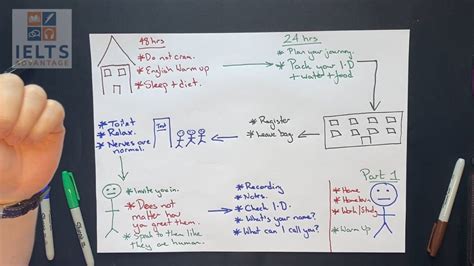 IELTS
ADVANTAGE
48 hrs
* Do not cram.
* English Warm up
* Sleep + diet.
24 hrs
* Plan your journey.
* Pack your I-D
+ water + food
* Toilet
* Relax.
* Nerves are
normal.
Int
* Register
* Leave bag
* Invite you in.
* Does not
matter how
you greet them.
* Speak to them like
they are human.
* Recording
* Notes.
* Check I-D.
* What's your name?
* What can I call you?
Part 1
* Home
* Hometown
* Work/Study
* Warm Up